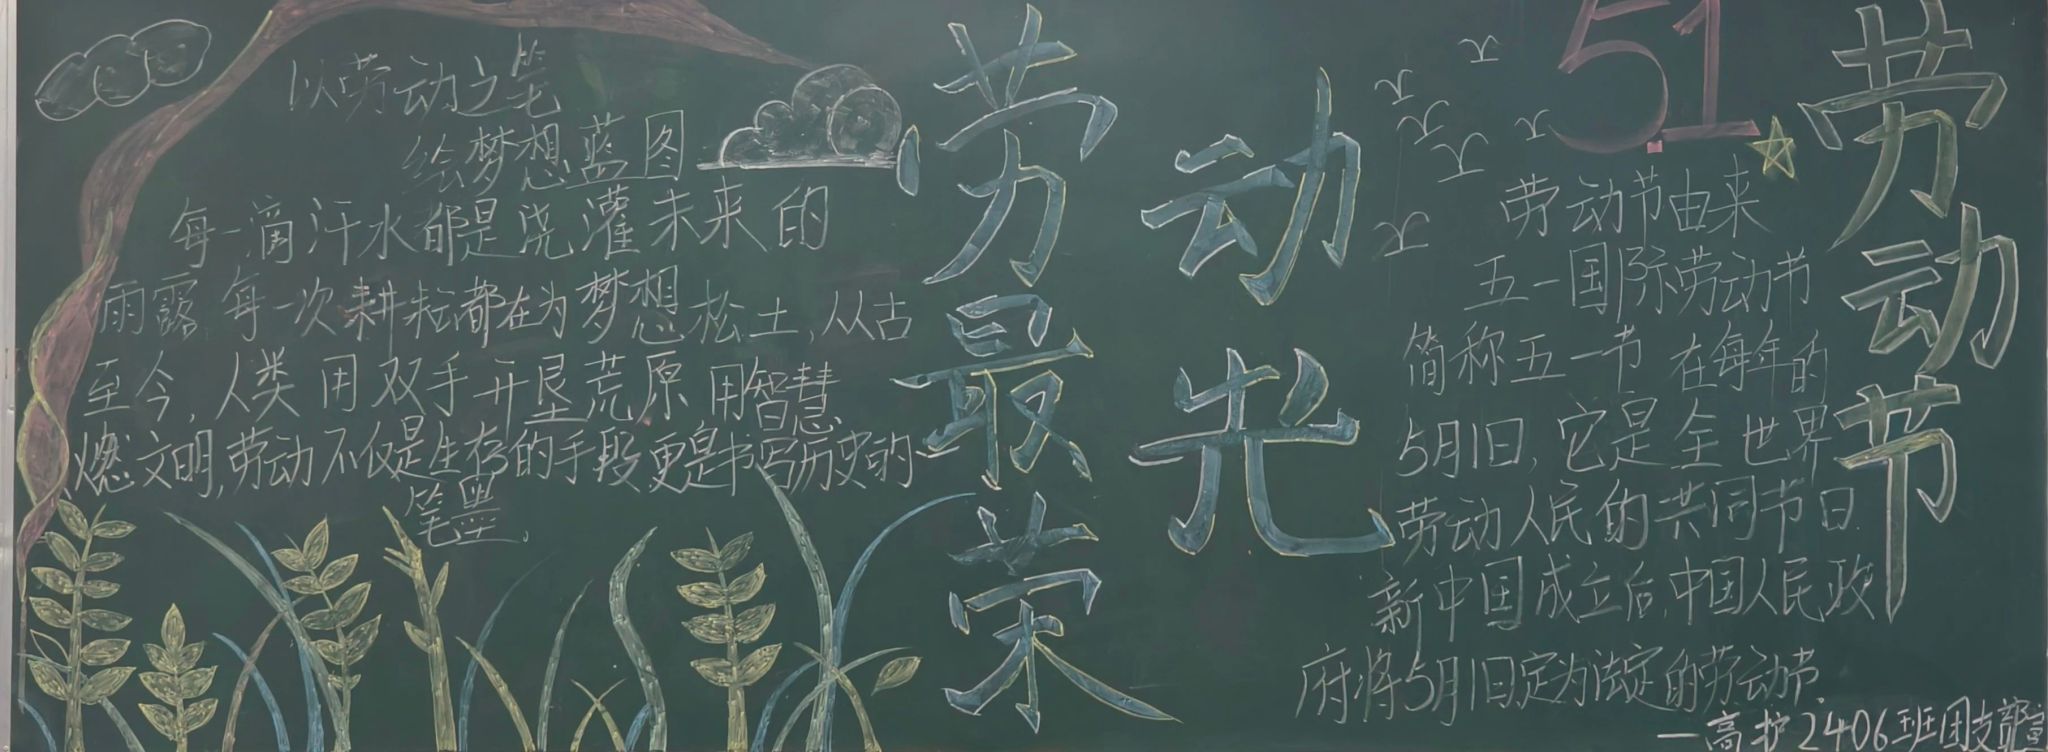 以劳动之笔
绘梦想蓝图
每一滴汗水都是浇灌未来的
雨露,每一次耕耘都在为梦想松土,从古
至今,人类用双手开垦荒原用智慧
燃文明,劳动不仅是生存的手段更是书写历史的
笔墨.
劳动最荣
动光
5.1
劳动节
劳动节由来
五一国际劳动节
简称五一节 在每年的
5月1日,它是全世界
劳动人民的共同节日
新中国成立后,中国人民政
府将5月1日定为法定的劳动节.
—高护2406班团支部宣